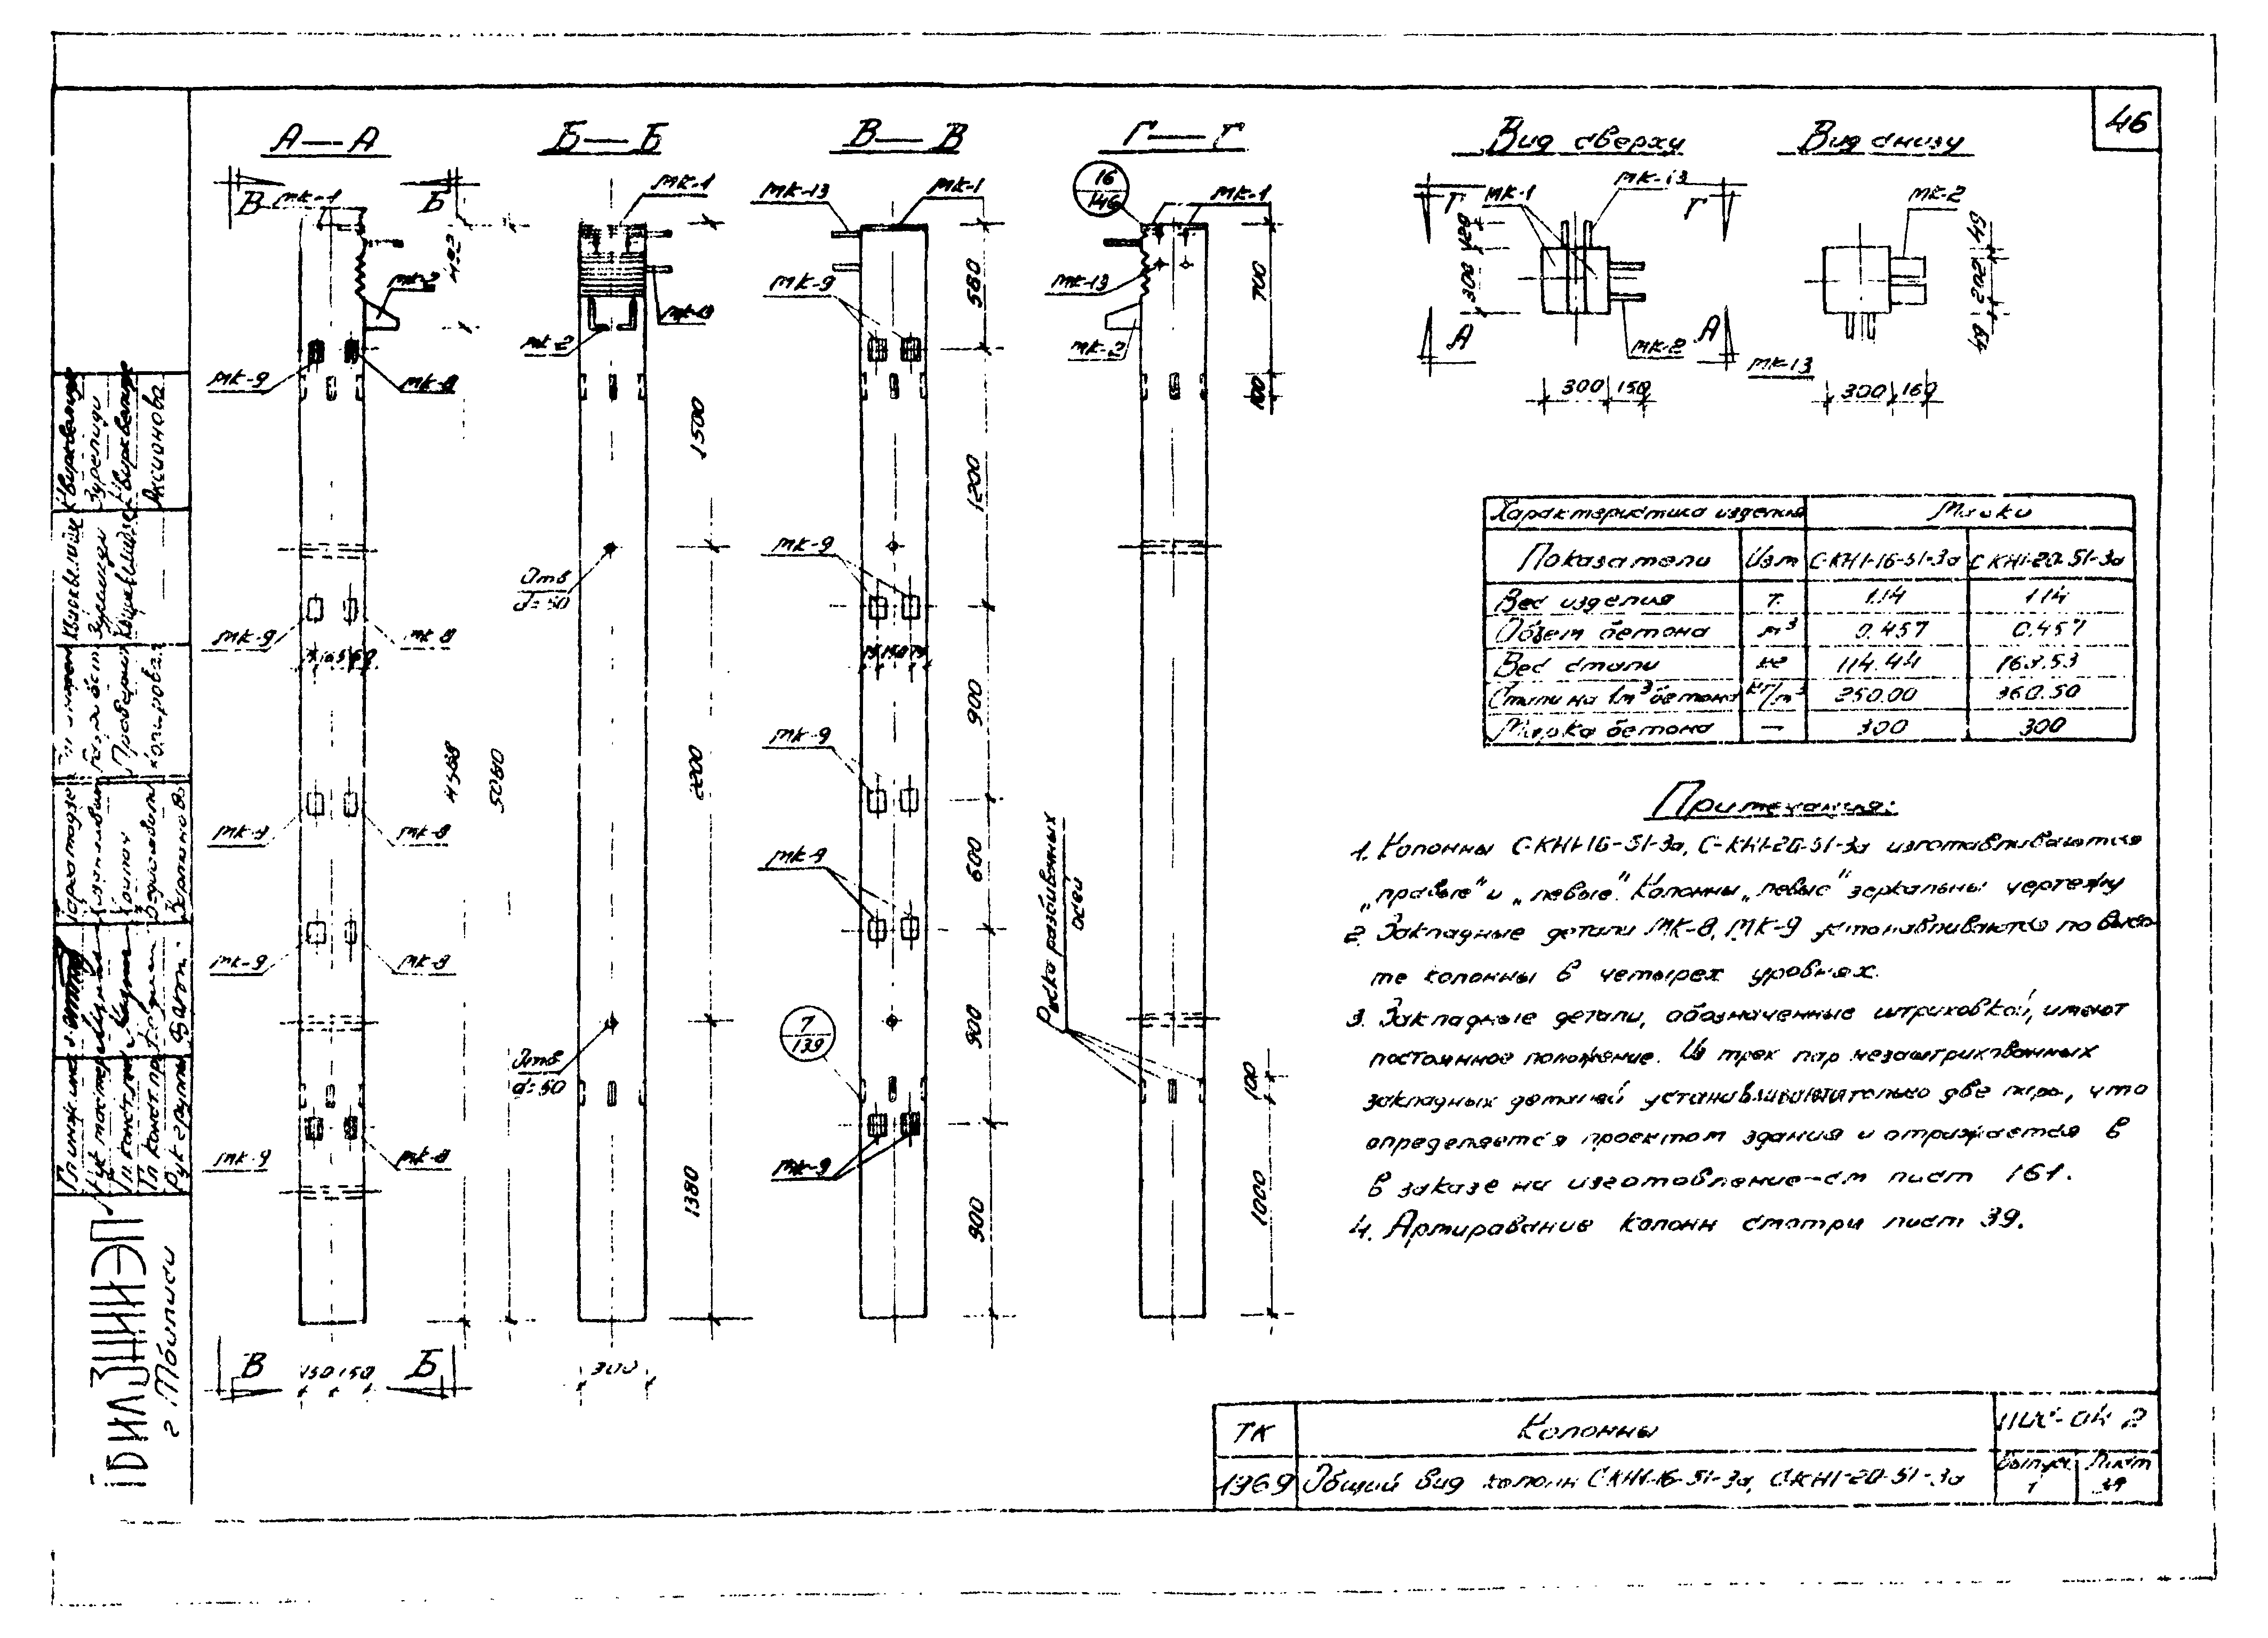 46
А—А
Б—Б
В—В
Г—Г
Вид сверху
Вид снизу
В
МК-1
Б
492
МК-2
МК-9
МК-8
МК-9
МК-8
МК-9
МК-8
МК-9
МК-8
МК-9
МК-8
4568
5060
В
150 150
Б
МК-1
МК-2
Отв
d=50
Отв
d=50
1500
2200
1380
300
МК-13
МК-1
МК-9
МК-9
МК-9
МК-9
7
139
МК-9
580
1200
900
600
900
900
16
146
МК-1
МК-13
МК-2
700
100
Риска разбивочных
осей
100
1000
Г
МК-1
МК-13
Г
300
А
МК-2
А
300 150
МК-2
49
202
49
МК-13
300 160
Характеристика изделия
Марки
Показатели Изм С-КН1-16-51-3а С-КН1-20-51-3а
Вес изделия т. 1.14 1.14
Объем бетона м³ 0.457 0.457
Вес стали кг 114.44 163.53
Стали на 1м³ бетона кг/м³ 250.00 360.50
Марка бетона — 300 300
Примечания:
1. Колонны С-КН1-16-51-3а, С-КН1-20-51-3а изготавливаются
„правые" и „левые". Колонны „левые" зеркальны чертежу
2. Закладные детали МК-8, МК-9 устанавливаются по высо-
те колонны в четырех уровнях.
3. Закладные детали, обозначенные штриховкой, имеют
постоянное положение. Из трех пар незаштрихованных
закладных деталей устанавливаются только две пары, что
определяется проектом здания и отражается в
в заказе на изготовление—см лист 161.
4. Армирование колонн смотри лист 39.
ТК
1969
Колонны
Общий вид колонн С-КН1-16-51-3а, С-КН1-20-51-3а
ИИС-04 2
Выпуск
1
Лист
34
Аксионова
Проверил
Копировал
Рук группы
г Тбилиси